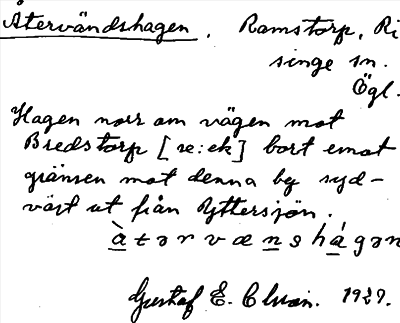 Återvändshagen, Ramstorp, Ri
singe sn.
Ögl.
Hagen norr om vägen mot
Bredstorp [re:ek] bort emot
gränsen mot denna by syd-
väst ut från Yttersjön.
à t ə r v æ n s h á g ə n
Gustaf E. 1929.